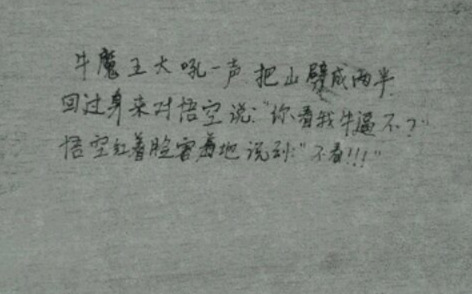 牛魔王大吼一声把山劈成两半
回过身来对悟空说:"你看我牛逼不?"
悟空红着脸害羞地说到:"不看!!!"